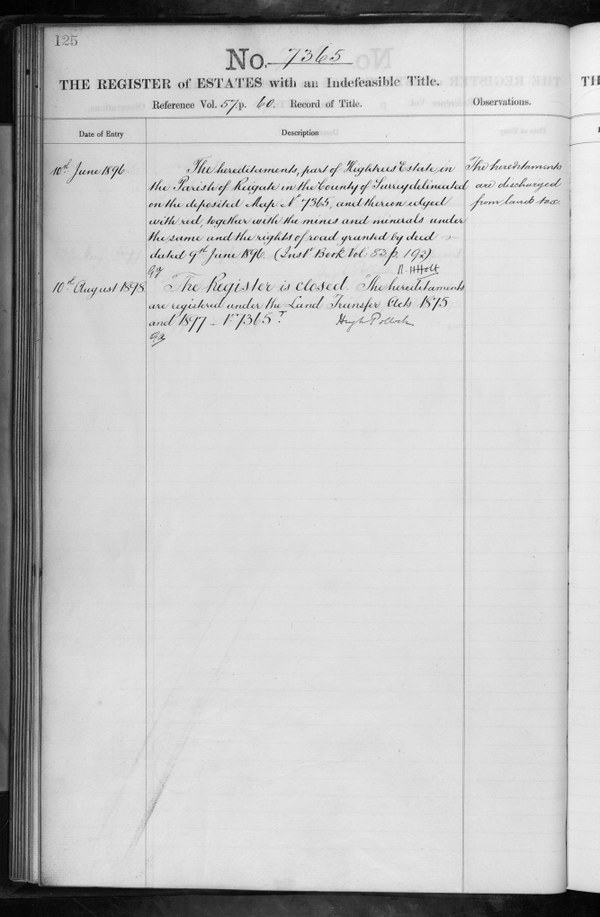 125
No. 7365
THE REGISTER of ESTATES with an Indefeasible Title.
Reference Vol. 57 p. 60. Record of Title.
Observations.
Date of Entry
Description
10th June 1896
The hereditaments, part of Hightrees Estate in
the Parish of Reigate in the County of Surrey delineated
on the deposited Map No 7365, and thereon edged
with red, together with the mines and minerals under
the same and the rights of road granted by deed
dated 9th June 1896. (Instt Book Vol 53 p. 192)
The hereditaments
are discharged
from land tax.
Holt
10th August 1898.
The Register is closed. The hereditaments
are registered under the Land Transfer Acts 1875
and 1897 - No 7365 T.
Hugh Pollock
TH